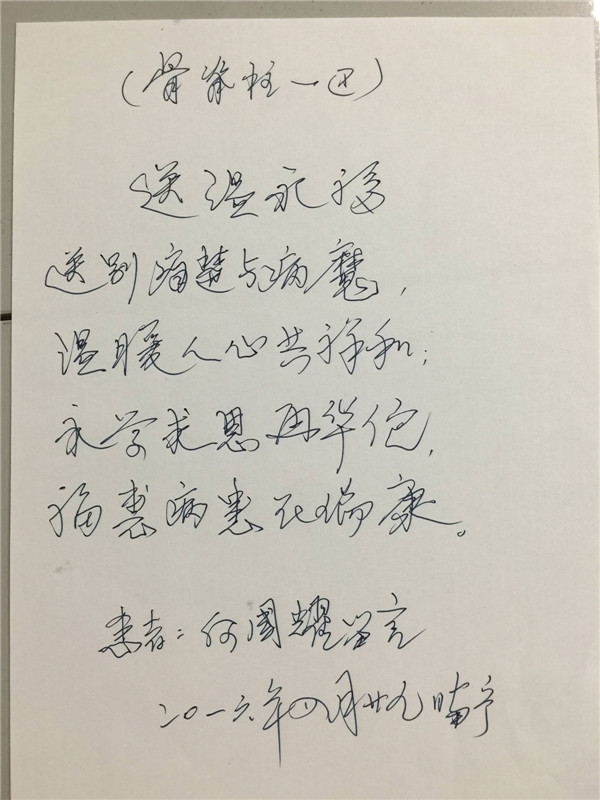 (骨脊柱一区)
送温永福
送别痛楚与病魔，
温暖人心共祥和；
永学求恩再华佗，
福惠病患 康。
患者：何国耀留言
二〇一六年四月廿九日